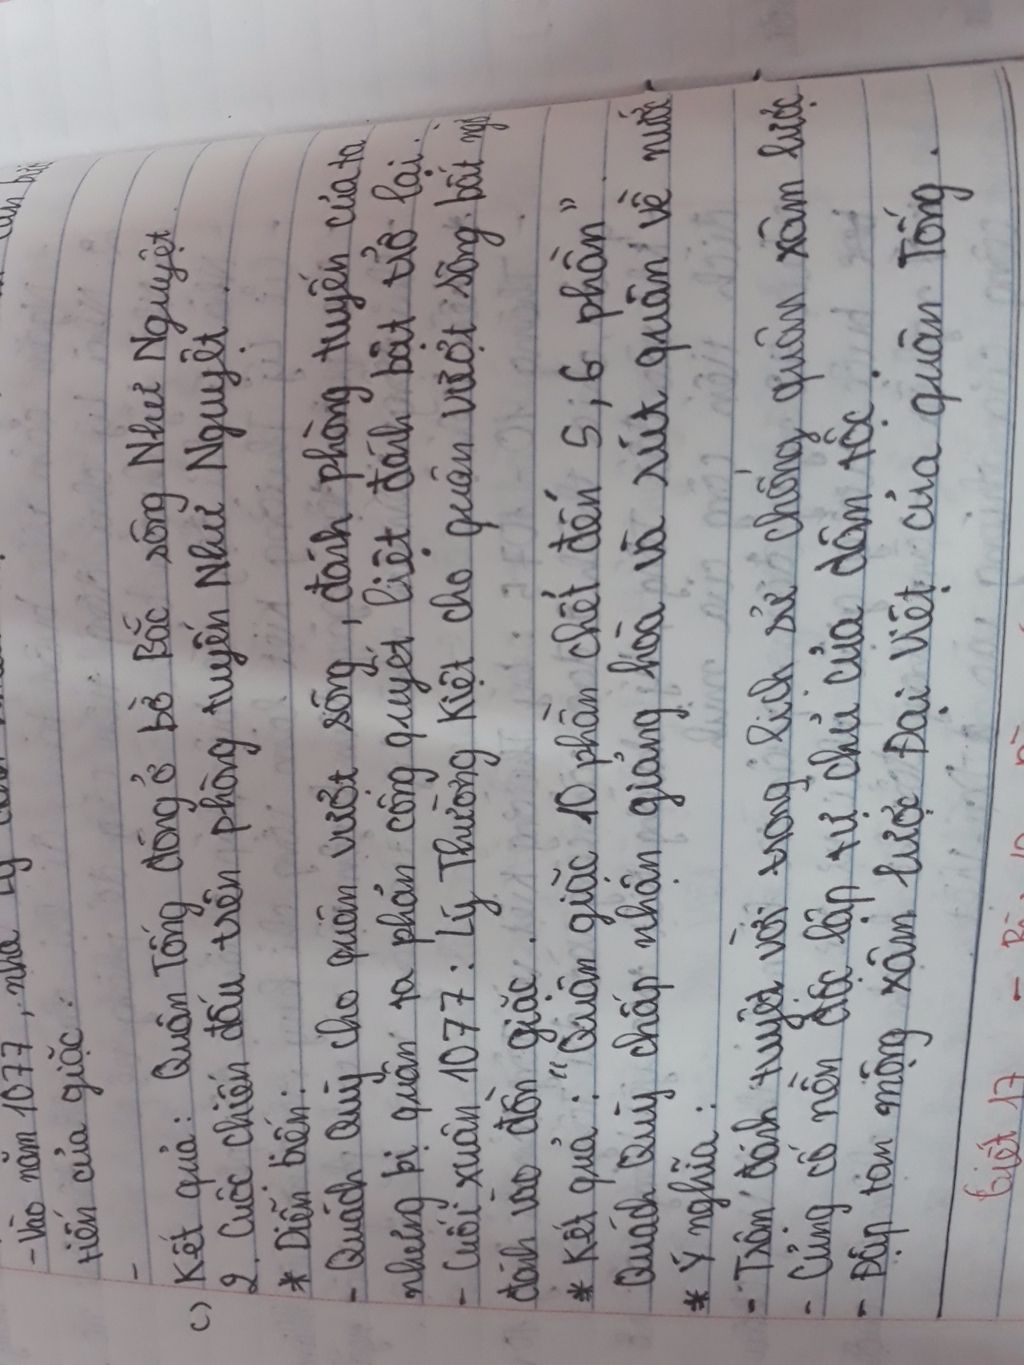 - Vào năm 1077, nhà Lý
tiến của giặc.
-
c) Kết quả: Quân Tống đóng ở bờ Bắc sông Như Nguyệt
2. Cuộc chiến đấu trên phòng tuyến Như Nguyệt.
* Diễn biến:
- Quách Quỳ cho quân vượt sông, đánh phòng tuyến của ta
nhưng bị quân ta phản công quyết liệt đánh bật trở lại.
- Cuối xuân 1077: Lý Thường Kiệt cho quân vượt sông bất ngờ
đánh vào đồn giặc.
* Kết quả: "Quân giặc 10 phần chết đến 5, 6 phần"
Quách Quỳ chấp nhận giảng hòa và rút quân về nước
* Ý nghĩa:
- Trận đánh tuyệt vời trong lịch sử chống quân xâm lược
- Củng cố nền độc lập tự chủ của dân tộc.
- Đập tan mộng xâm lược Đại Việt của quân Tống.
Tiết 17 -